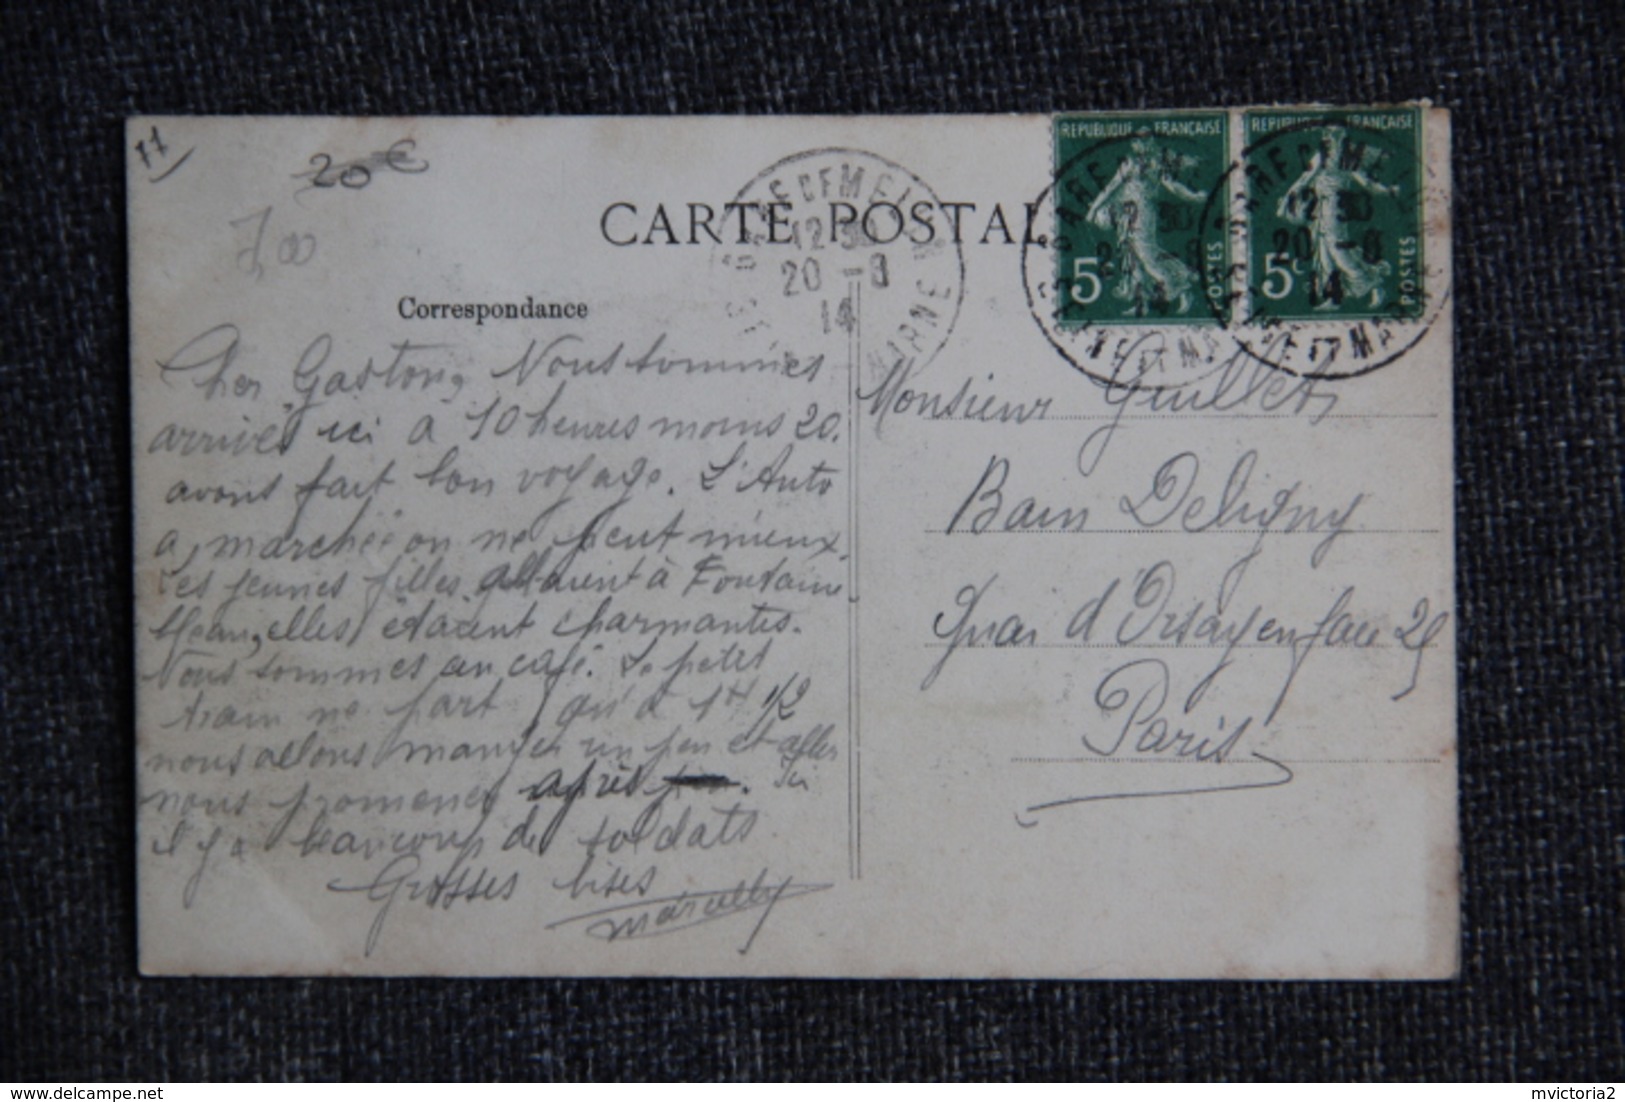 11
20 €
7,00
CARTE POSTALE
Correspondance
REPUBLIQUE FRANÇAISE
5c POSTES
REPUBLIQUE FRANÇAISE
5c POSTES
GARE DE MELUN
12 30
20 - 8
14
SEINE ET MARNE
Cher Gaston, Nous sommes
arrivés ici à 10 heures moins 20.
avons fait bon voyage. L'Auto
a, marchée on ne peut mieux.
Les jeunes filles allaient à Fontaine
bleau, elles étaient charmantes.
Nous sommes au café. Le petit
train ne part qu'à 1H 1/2
nous allons manger un peu et aller
nous promener après. Ici
il y a beaucoup de soldats
Grosses bises
Marcelle
Monsieur Guillet
Bain Deligny
Quai d'Orsay en face 25
Paris
mvictoria2